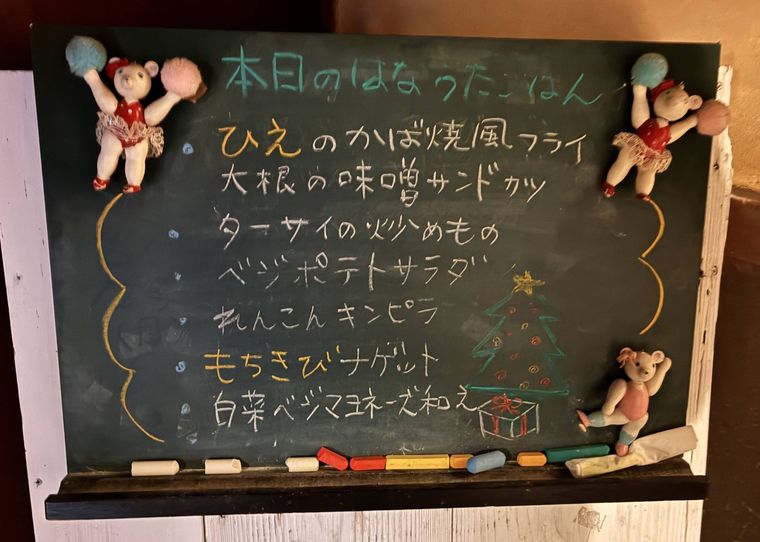 本日のはなったごはん
ひえのかば焼風フライ
大根の味噌サンドカツ
ターサイの炒めもの
ベジポテトサラダ
れんこんキンピラ
もちきびナゲット
白菜ベジマヨネーズ和え